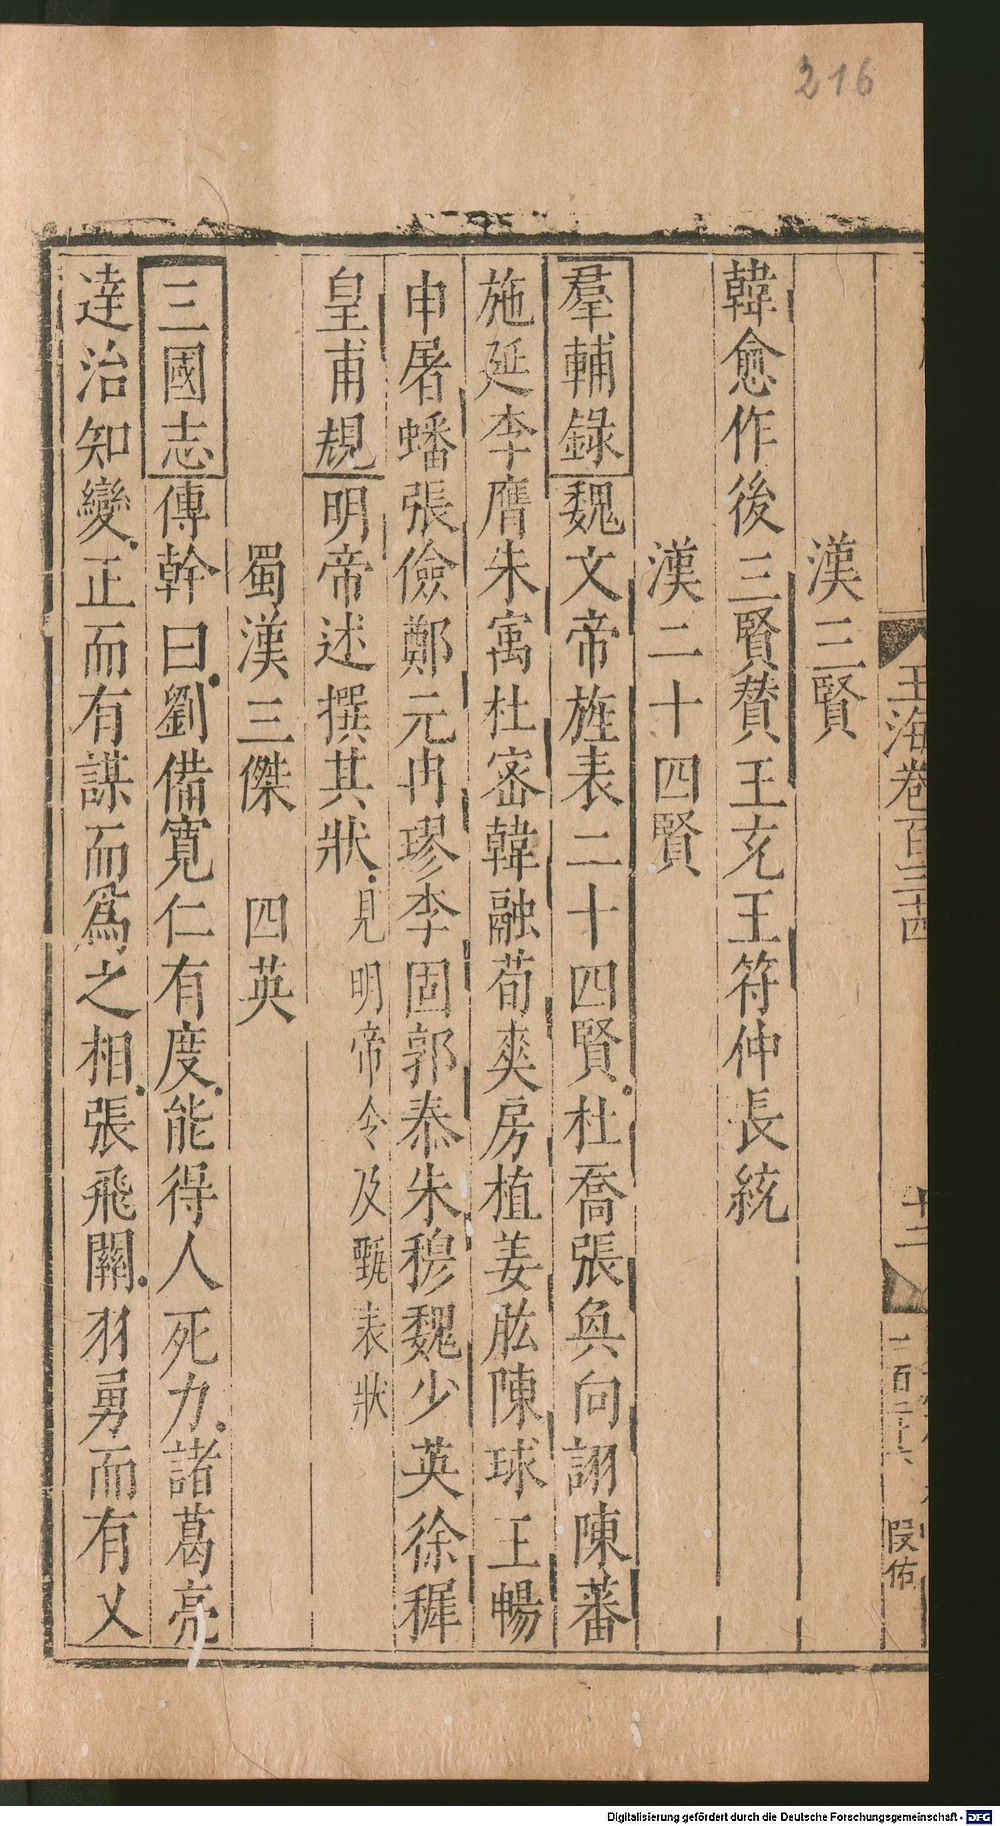 216
玉海卷百三十四
十二
段佑
漢三賢
韓愈作後三賢賛王充王符仲長統
漢二十四賢
羣輔錄魏文帝旌表二十四賢杜喬張奐向詡陳蕃
施延李膺朱寓杜宻韓融荀爽房植姜肱陳球王暢
申屠蟠張儉鄭元冉璆李固郭泰朱穆魏少英徐穉
皇甫規明帝述撰其狀見明帝令及甄表狀
蜀漢三傑　四英
三國志傅幹曰劉備寛仁有度能得人死力諸葛亮
達治知變正而有謀而爲之相張飛關羽勇而有义
Digitalisierung gefördert durch die Deutsche Forschungsgemeinschaft - DFG